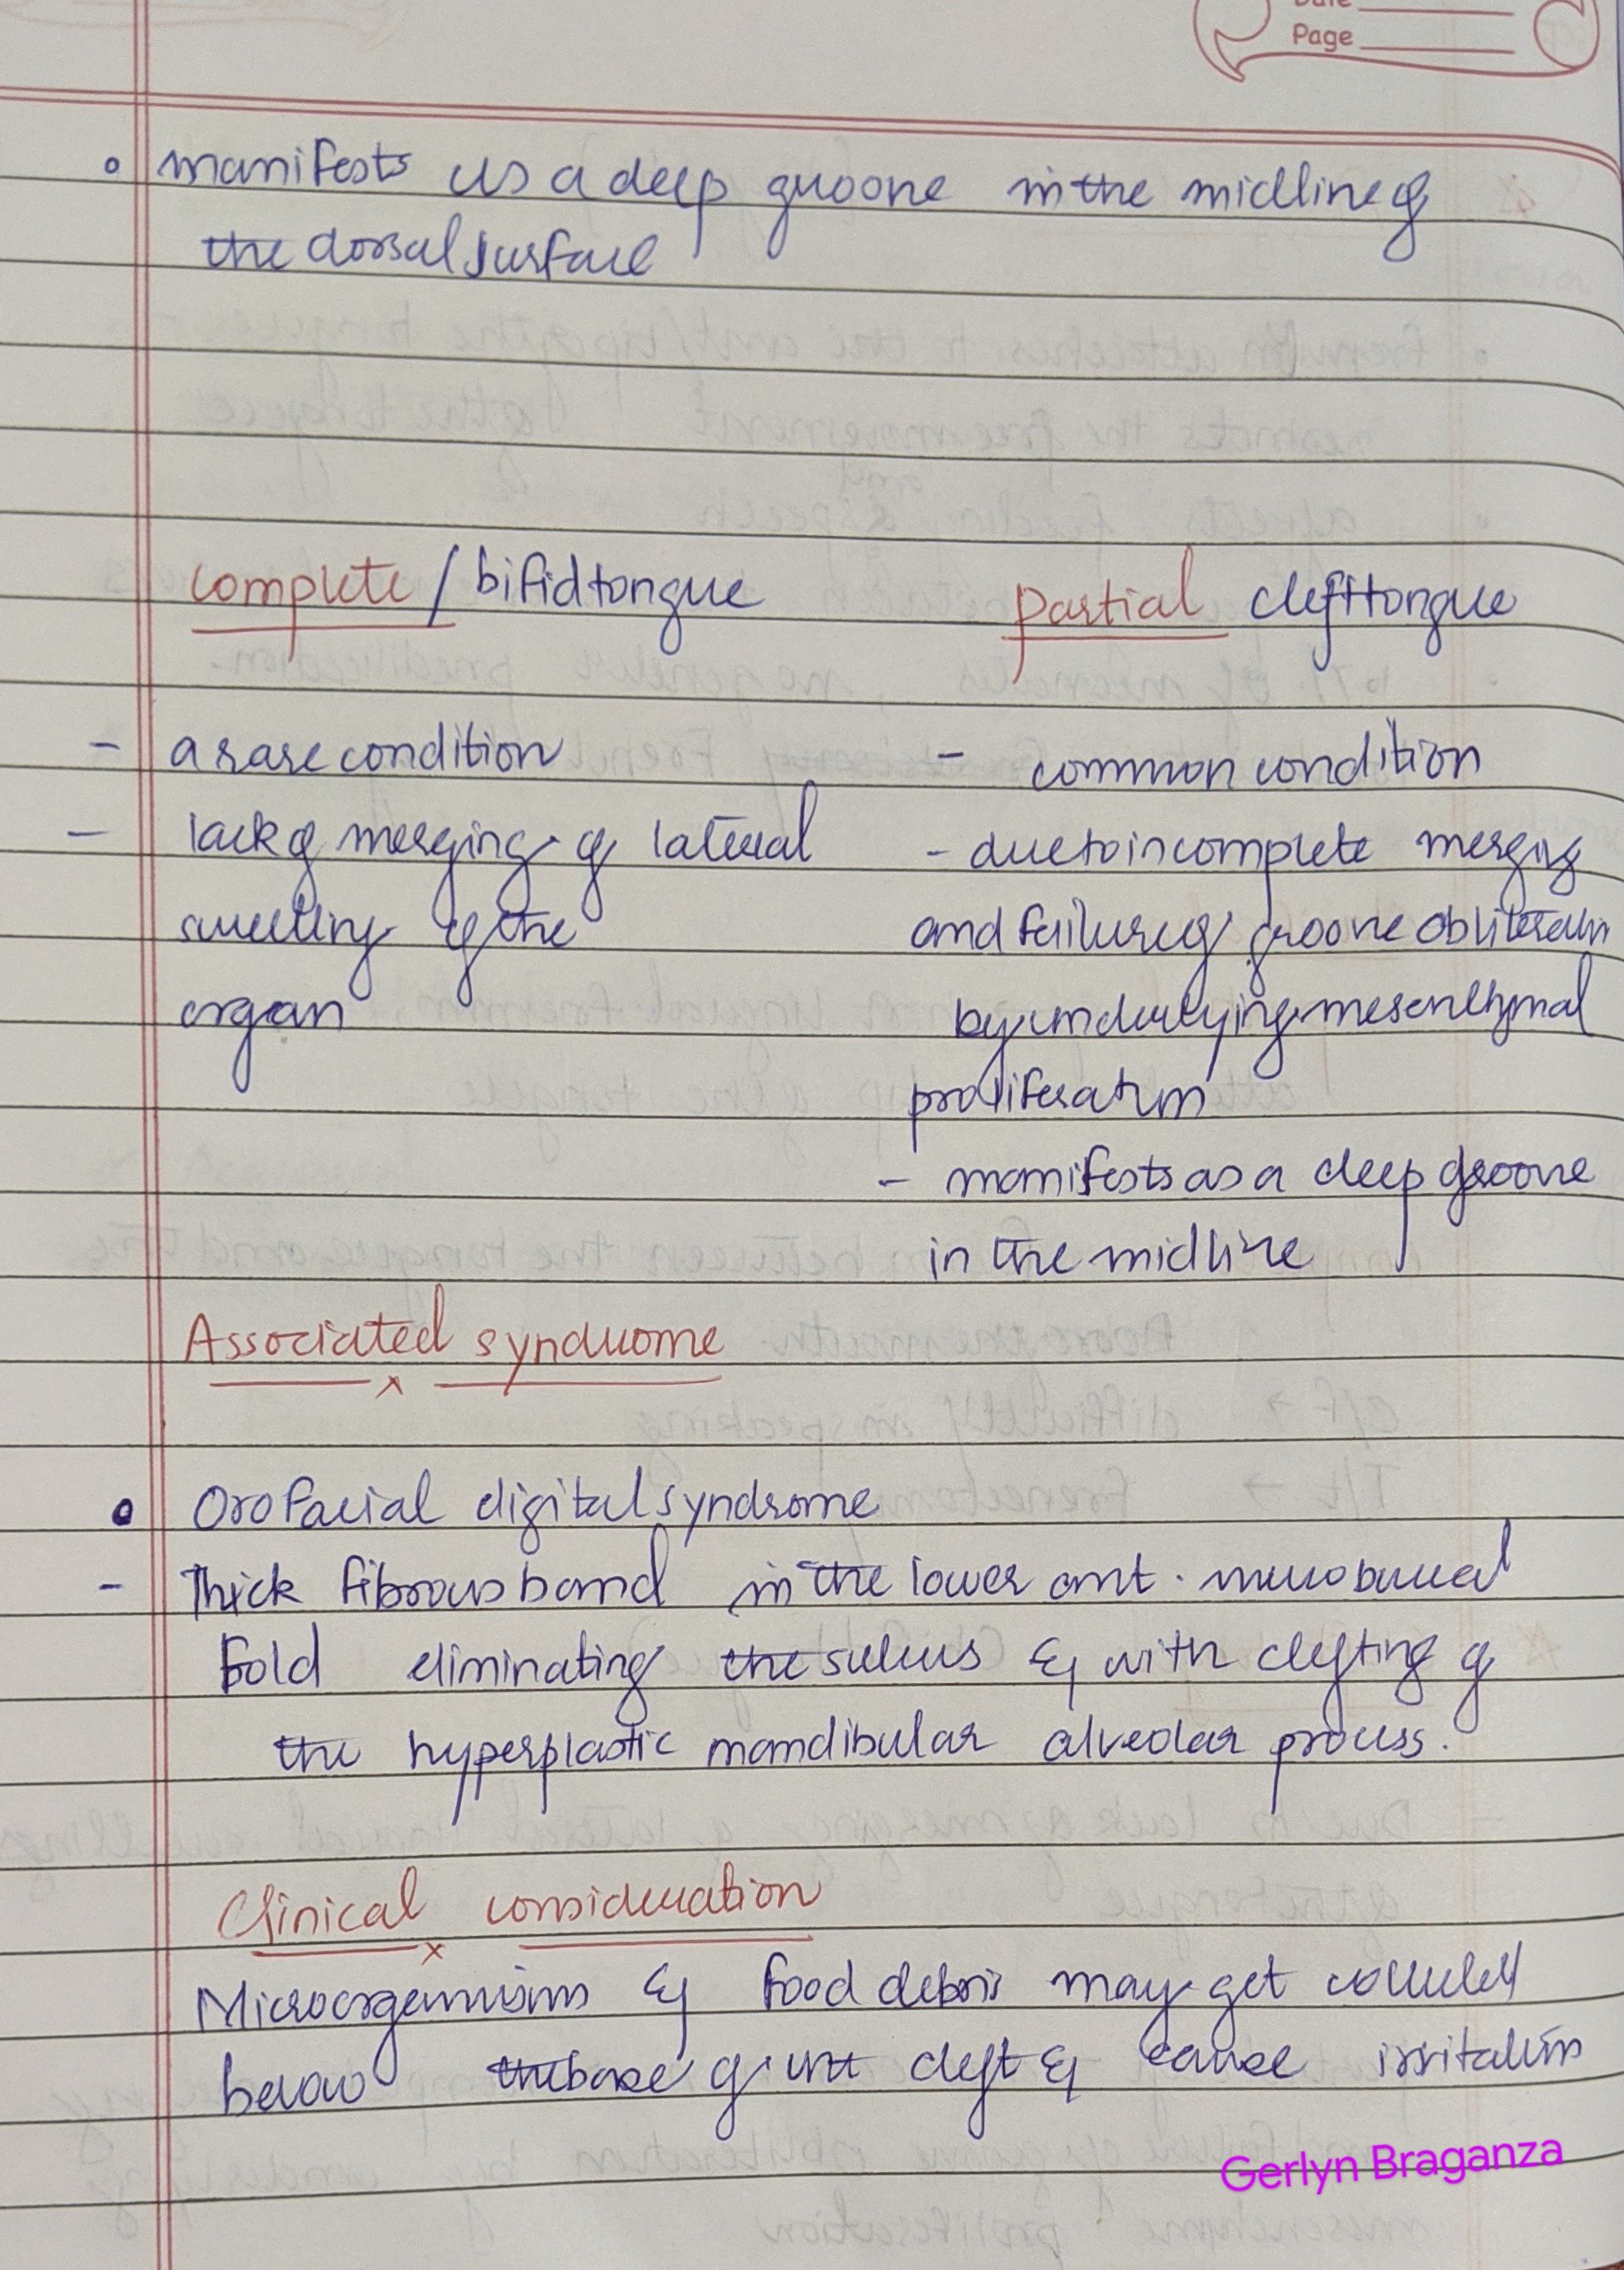 Date
Page
• manifests as a deep groove in the midline of
the dorsal surface
complete / bifid tongue
- a rare condition
- lack of merging of lateral
swelling of the
organ
partial cleft tongue
- common condition
- due to incomplete merging
and failure of groove obliteration
by underlying mesenchymal
proliferation
- manifests as a deep groove
in the midline
Associated syndrome
• Orofacial digital syndrome
- Thick fibrous band in the lower ant. mucobuccal
fold eliminating the sulcus & with clefting of
the hyperplastic mandibular alveolar process.
Clinical consideration
Microorganisms & food debris may get collected
below the base of the cleft & cause irritation
Gerlyn Braganza